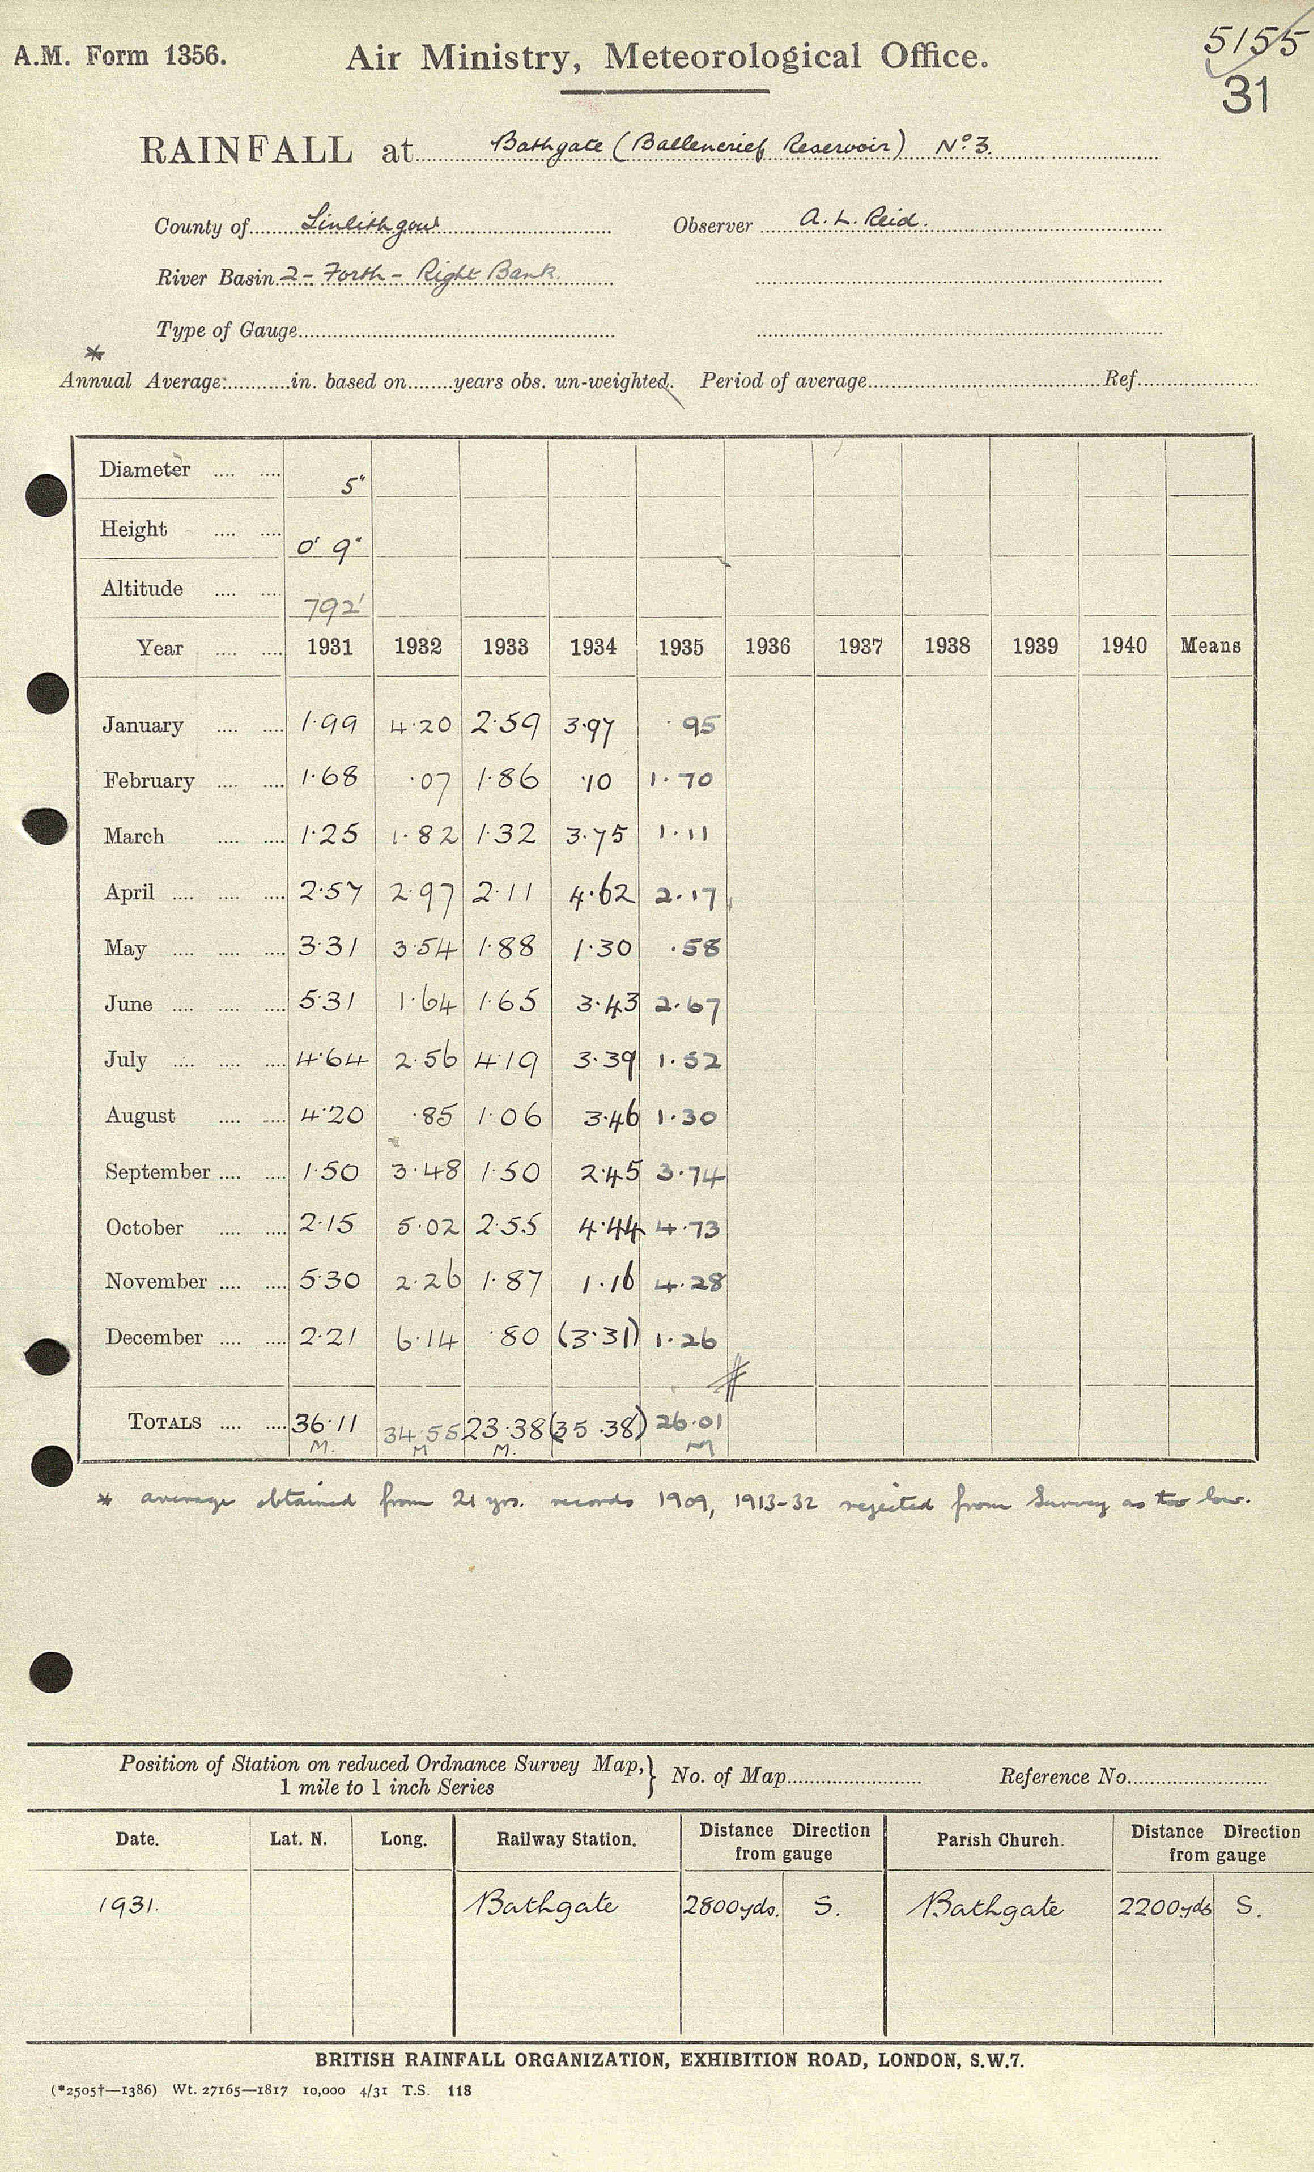 A.M. Form 1356.
Air Ministry, Meteorological Office.
5155
31
RAINFALL at Bathgate (Ballencrieff Reservoir) No. 3.
County of Linlithgow Observer A. L. Reid.
River Basin 2 - Forth - Right Bank.
Type of Gauge
*
Annual Average: in. based on years obs. un-weighted. Period of average Ref.
Diameter 5"
Height 0' 9"
Altitude 792'
Year 1931 1932 1933 1934 1935 1936 1937 1938 1939 1940 Means
January 1.99 4.20 2.59 3.97 .95
February 1.68 .07 1.86 .10 1.70
March 1.25 1.82 1.32 3.75 1.11
April 2.57 2.97 2.11 4.62 2.17
May 3.31 3.54 1.88 1.30 .58
June 5.31 1.64 1.65 3.43 2.67
July 4.64 2.56 4.19 3.39 1.52
August 4.20 .85 1.06 3.46 1.30
September 1.50 3.48 1.50 2.45 3.74
October 2.15 5.02 2.55 4.44 4.73
November 5.30 2.26 1.87 1.16 4.28
December 2.21 6.14 .80 (3.31) 1.26
TOTALS 36.11 34.55 23.38 (35.38) 26.01
M. M M. M
* average obtained from 21 yrs. records 1909, 1913-32 rejected from Survey as too low.
Position of Station on reduced Ordnance Survey Map, 1 mile to 1 inch Series } No. of Map Reference No.
Date. Lat. N. Long. Railway Station. Distance Direction from gauge Parish Church. Distance Direction from gauge
1931. Bathgate 2800yds. S. Bathgate 2200yds S.
BRITISH RAINFALL ORGANIZATION, EXHIBITION ROAD, LONDON, S.W.7.
(*2505†—1386) Wt. 27165—1817 10,000 4/31 T.S. 118